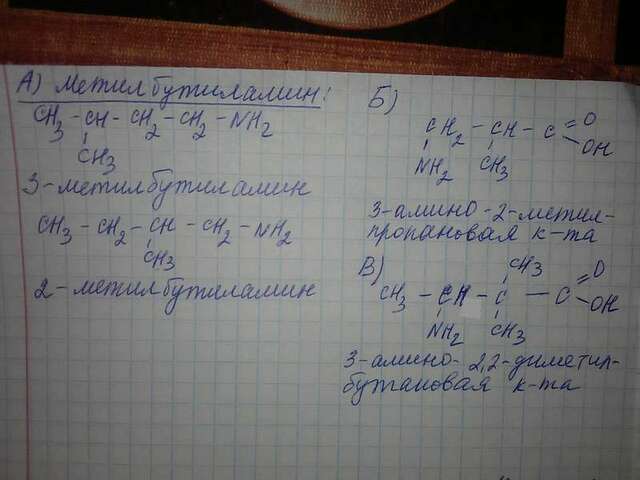 А) Метилбутиламин:
CH3 - CH - CH2 - CH2 - NH2
CH3
3-метилбутиламин
CH3 - CH2 - CH - CH2 - NH2
CH3
2-метилбутиламин
Б)
CH2 - CH - C = O
OH
NH2 CH3
3-амино-2-метил-
пропановая к-та
В)
CH3
CH3 - CH - C - C = O
OH
NH2 CH3
3-амино-2,2-диметил-
бутановая к-та